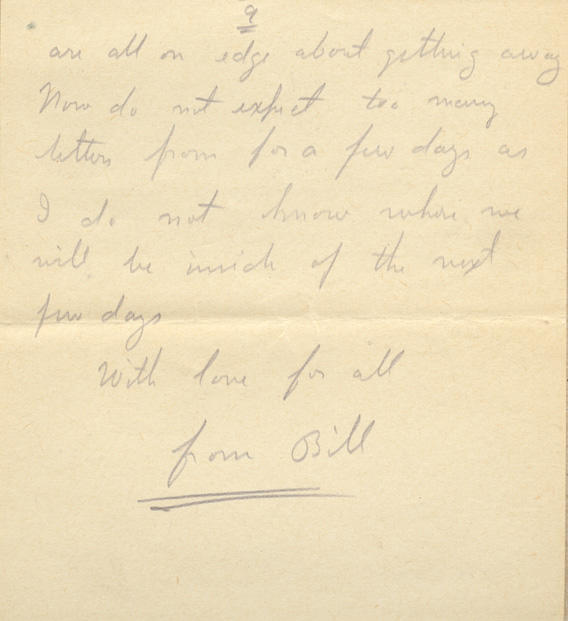 9
are all on edge about getting away
Now do not expect too many
letters from for a few days as
I do not know where we
will be inside of the next
few days
With love for all
from Bill